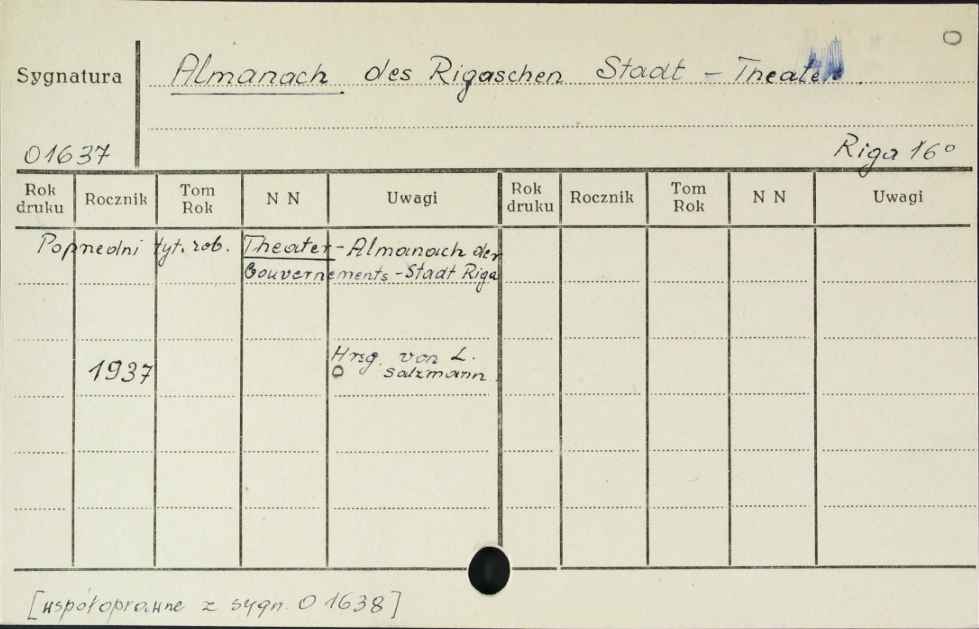 O
Sygnatura
Almanach des Rigaschen Stadt - Theaters.
01637
Riga 16°
Rok druku Rocznik Tom Rok N N Uwagi Rok druku Rocznik Tom Rok N N Uwagi
Poprzedni tyt. rob. Theater-Almanach der
Gouvernements-Stadt Riga
1937 Hrsg. von L.
O Salzmann
[współoprawne z sygn. O 1638]